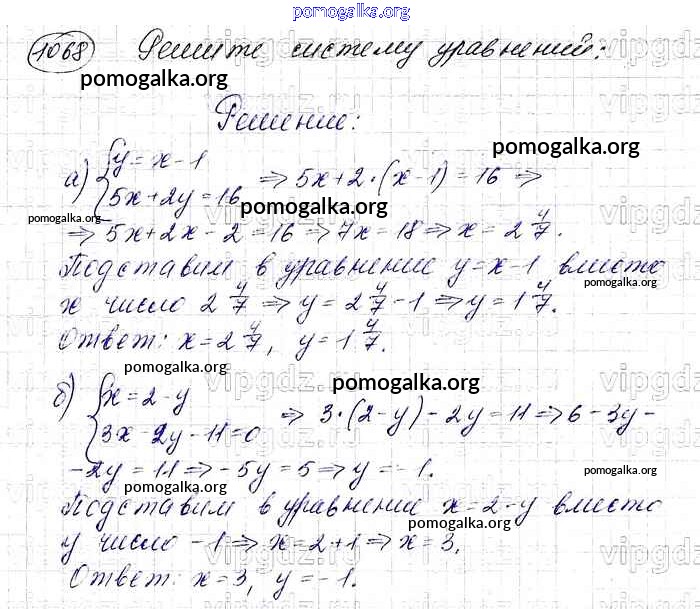 pomogalka.org
1068 Решите систему уравнений:
pomogalka.org
Решение:
pomogalka.org
а) { y = x - 1
5x + 2y = 16 ⇒ 5x + 2·(x - 1) = 16 ⇒
pomogalka.org
pomogalka.org
⇒ 5x + 2x - 2 = 16 ⇒ 7x = 18 ⇒ x = 2 4/7.
Подставим в уравнение y = x - 1 вместо
x число 2 4/7 ⇒ y = 2 4/7 - 1 ⇒ y = 1 4/7.
pomogalka.org
Ответ: x = 2 4/7, y = 1 4/7.
pomogalka.org
pomogalka.org
б) { x = 2 - y
3x - 2y - 11 = 0 ⇒ 3·(2 - y) - 2y = 11 ⇒ 6 - 3y -
- 2y = 11 ⇒ - 5y = 5 ⇒ y = - 1.
pomogalka.org
pomogalka.org
Подставим в уравнение x = 2 - y вместо
pomogalka.org
y число - 1 ⇒ x = 2 + 1 ⇒ x = 3,
Ответ: x = 3, y = - 1.
vipgdz.ru